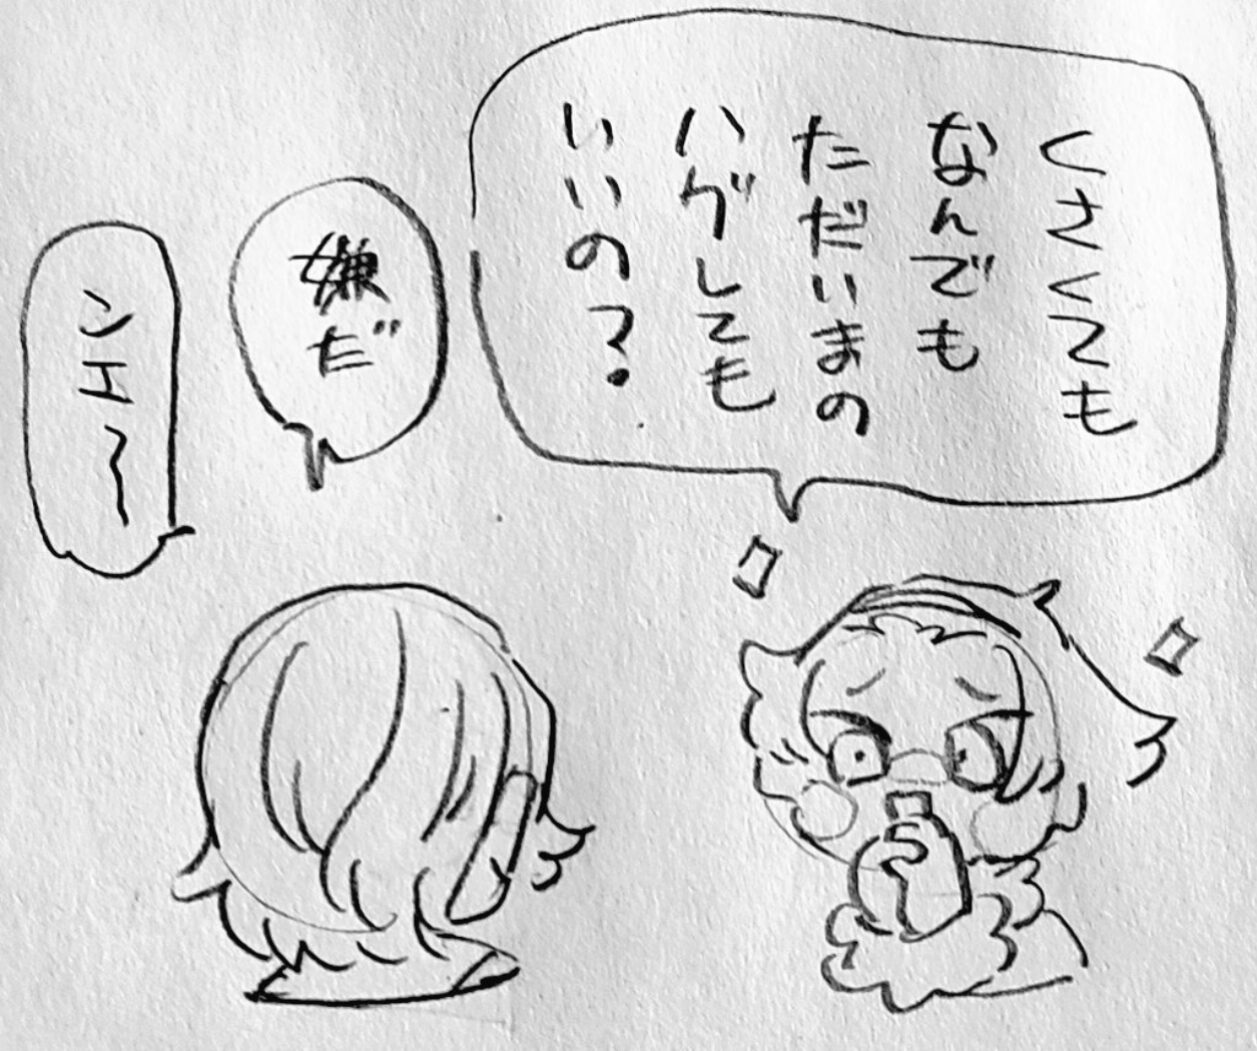 くさくても
なんでも
ただいまの
ハグしても
いいの？
嫌だ
ンエ〜